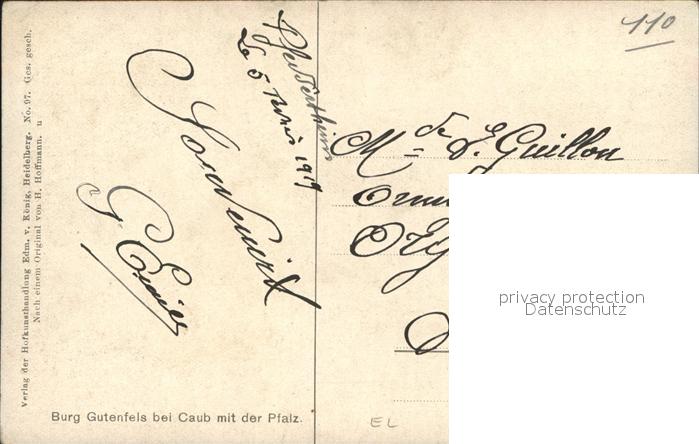 110
Pfeddersheim
Le 5 Mars 1919
Souvenir
G. Emile
Mde Vve Guillon
Orgy
privacy protection
Datenschutz
Burg Gutenfels bei Caub mit der Pfalz.
EL
Verlag der Hofkunsthandlung Edm. v. König, Heidelberg. No. 97. Ges. gesch.
Nach einem Original von H. Hoffmann. u